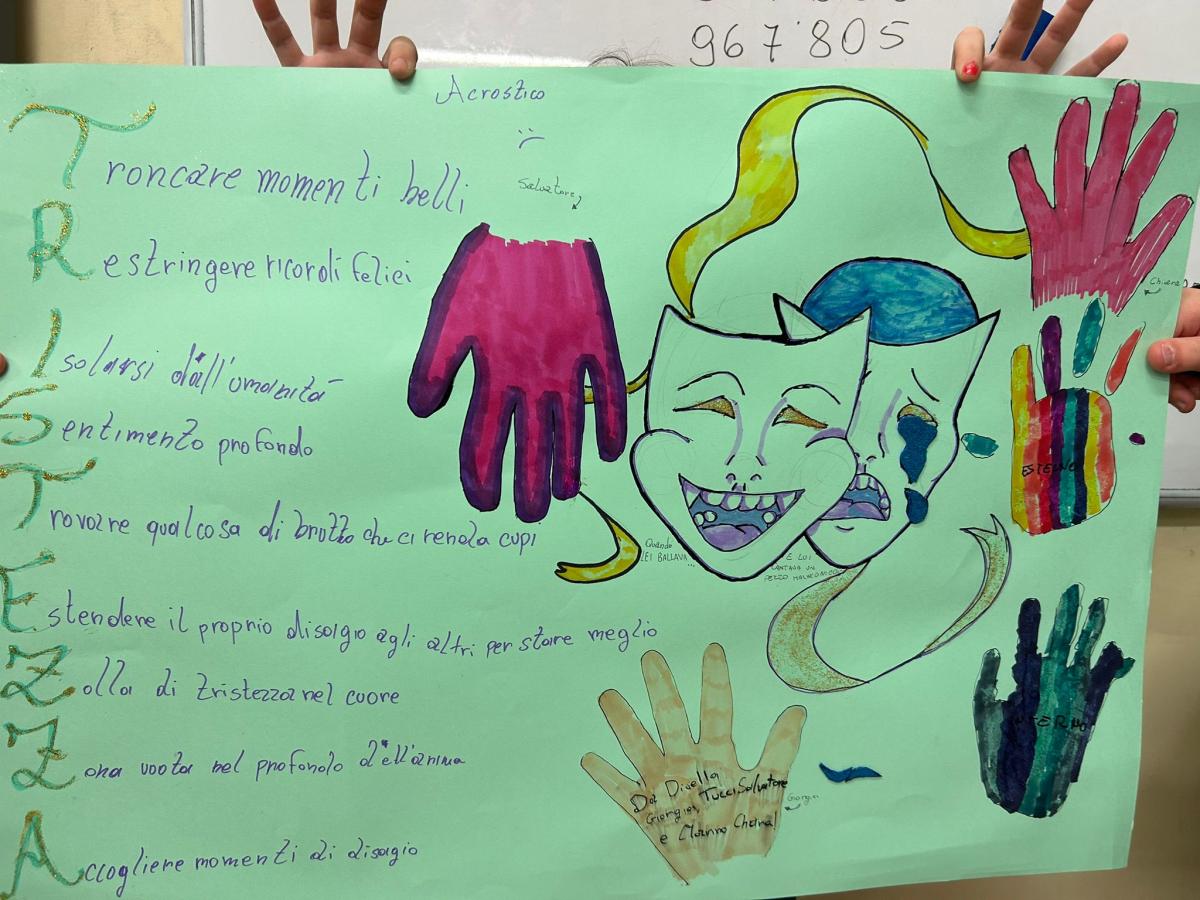 967'805
Acrostico
Troncare momenti belli
Salvatore
Restringere ricordi felici
Isolarsi dall'umanità
Sentimento profondo
Trovare qualcosa di brutto che ci renda cupi
Estendere il proprio disagio agli altri per stare meglio
Zolla di tristezza nel cuore
Zona vuota nel profondo dell'anima
Accogliere momenti di disagio
Chiara
ESTERNO
Quando
LEI BALLAVA...
E LUI
CANTAVA UN
PEZZO MALINCONICO
INTERNO
Da Divella
Giorgia, Tucci Salvatore
e Chiara!
Giorgia